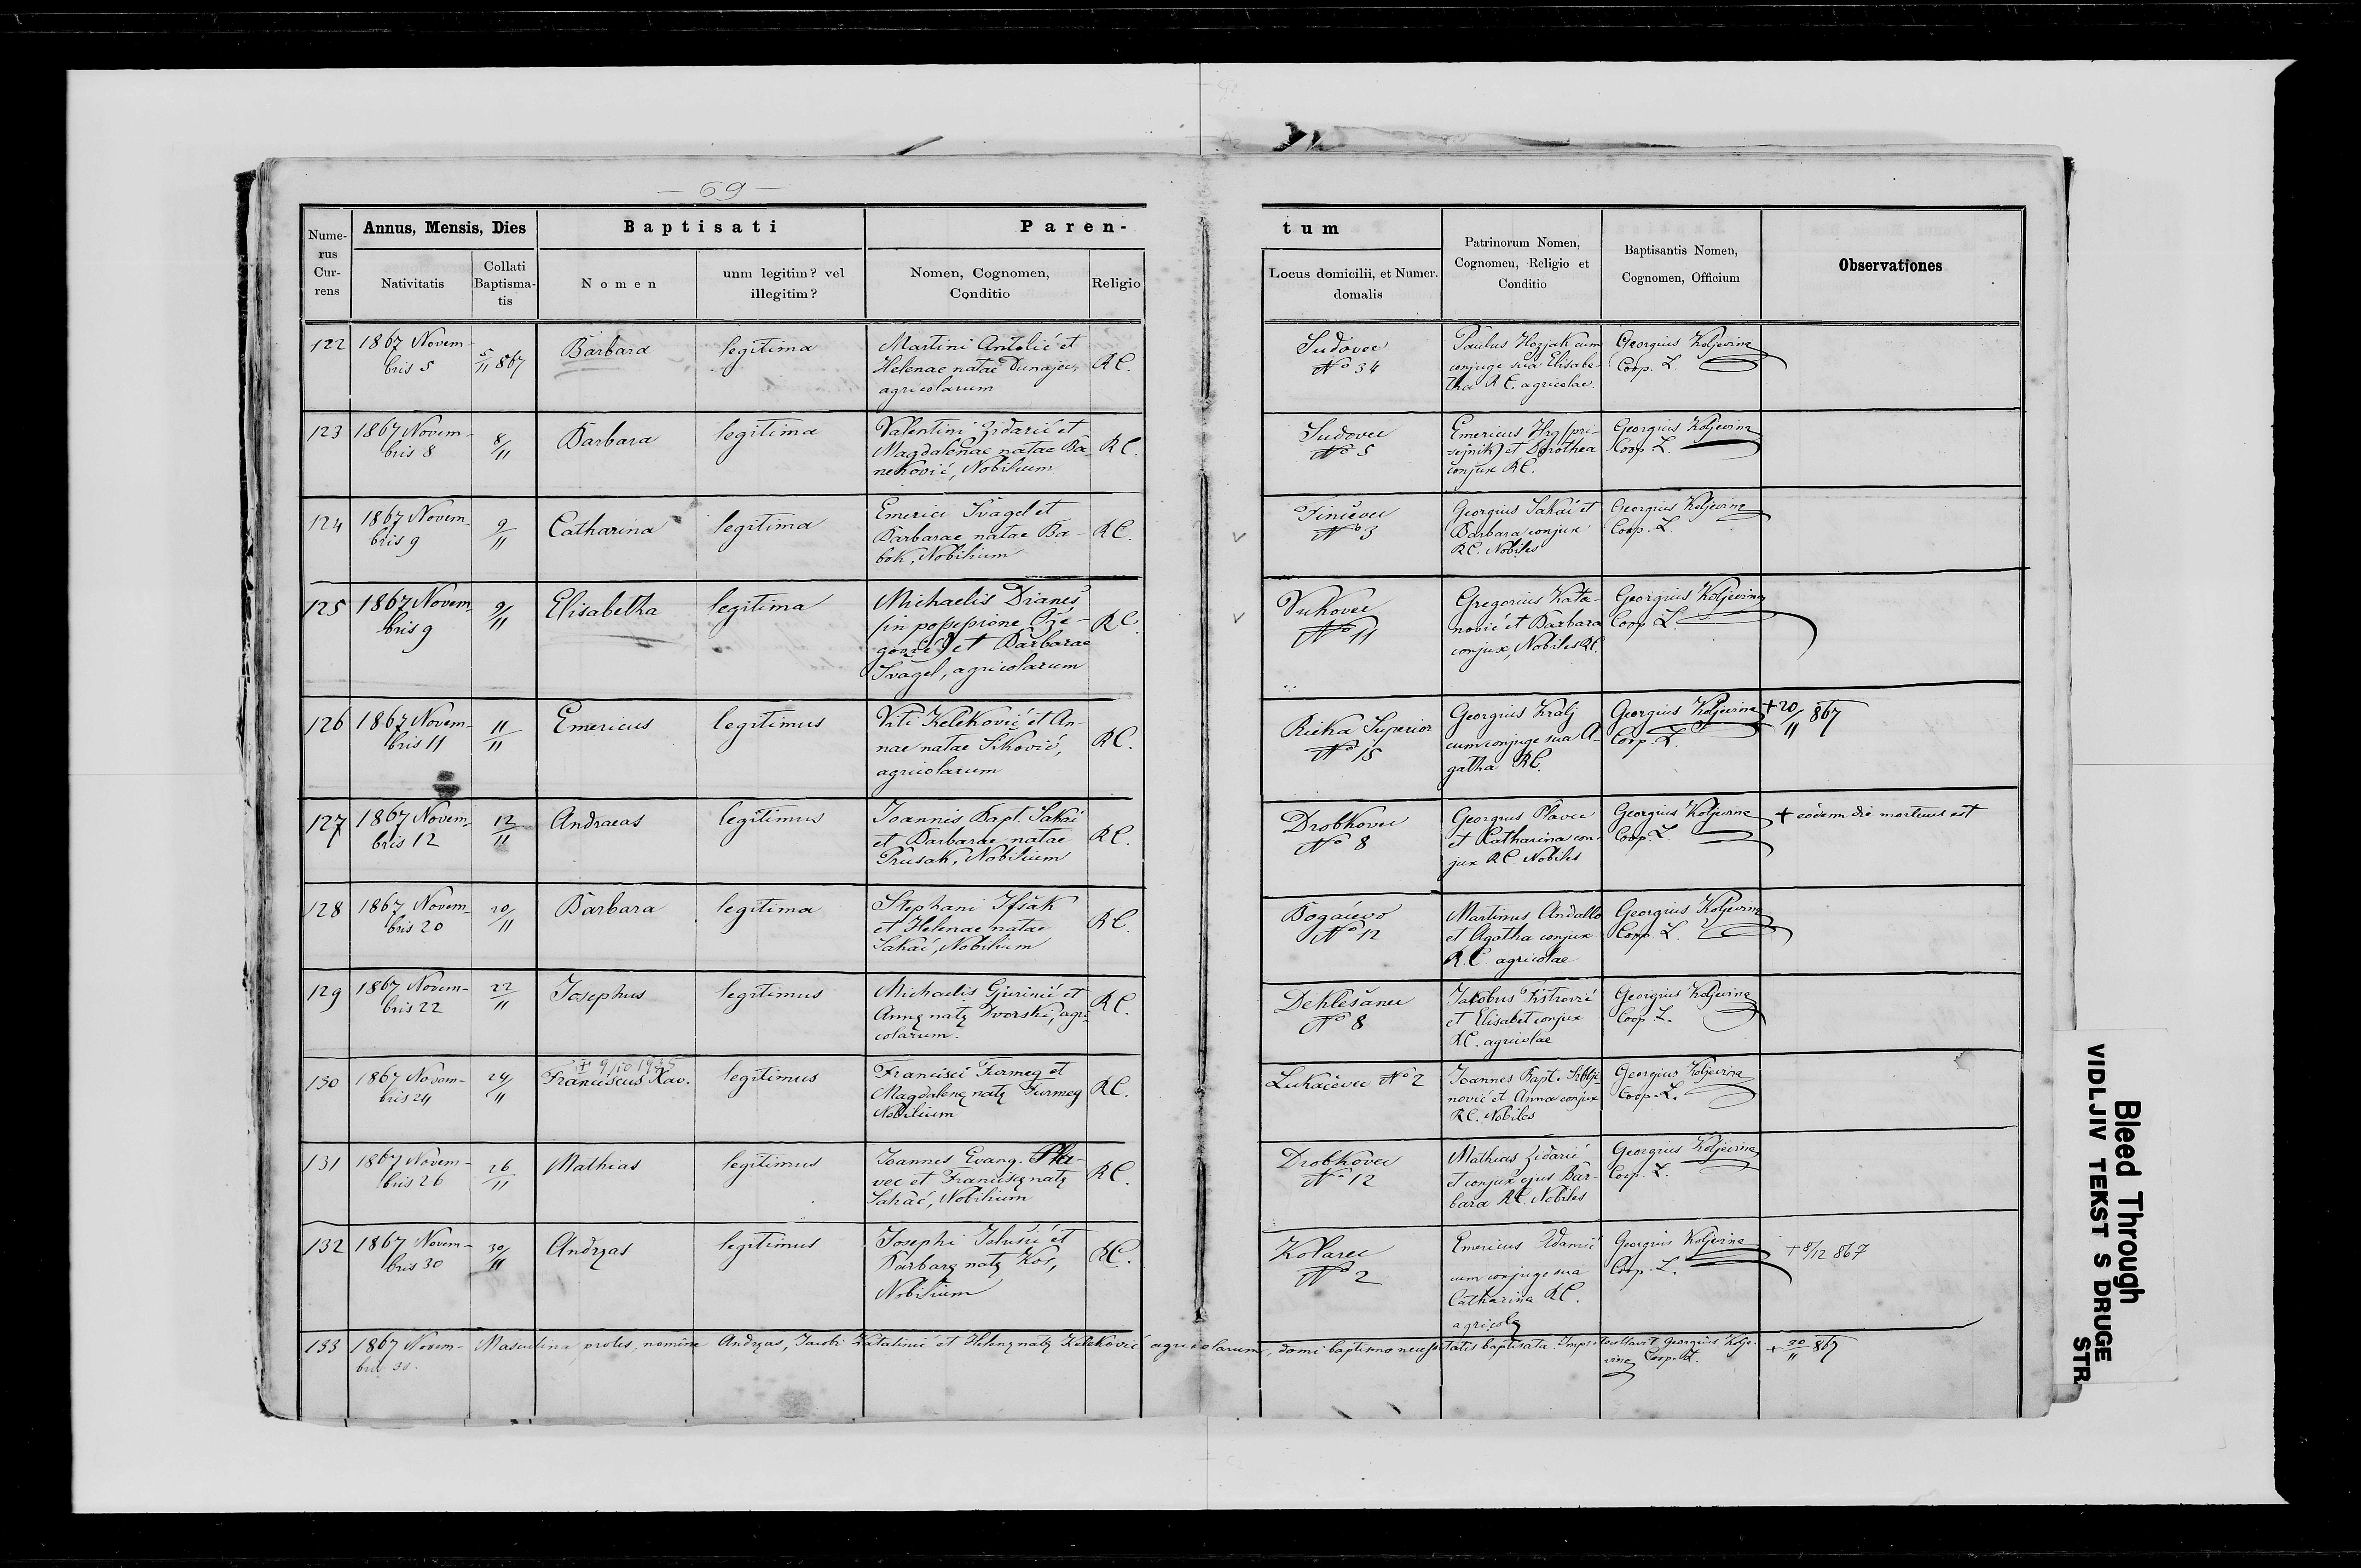 — 69 —
Nume-
rus
Cur-
rens
Annus, Mensis, Dies
Nativitatis
Collati
Baptisma-
tis
Baptisati
Nomen
unm legitim? vel
illegitim?
Paren-
Nomen, Cognomen,
Conditio
Religio
tum
Locus domicilii, et Numer.
domalis
Patrinorum Nomen,
Cognomen, Religio et
Conditio
Baptisantis Nomen,
Cognomen, Officium
Observationes
122
1867 Novem
bris 5
5/11 867
Barbara
legitima
Martini Antolić et
Helenae natae Dunajec,
agricolarum
RC.
Sudovec
No 34
Paulus Hozjak cum
conjuge sua Elisabe-
tha RC. agricolae.
Georgius Koljevina
Coop. L.
123
1867 Novem-
bris 8
8/11
Barbara
legitima
Valentini Zidarić et
Magdalenae natae Ba-
neković, Nobilium
RC.
Sudovec
No 5
Emericus Hrg (pri-
sejnik) et Dorothea
conjux RC.
Georgius Koljevina
Coop. L.
124
1867 Novem-
bris 9
9/11
Catharina
legitima
Emerici Švagel et
Barbarae natae Ba-
bok, Nobilium
RC.
Finičevec
No 3
Georgius Sakač et
Barbara conjux
RC. Nobiles
Georgius Koljevina
Coop. L.
125
1867 Novem-
bris 9
9/11
Elisabetha
legitima
Michaelis Dianeš
(in possessione Ože-
gović) et Barbarae
Švagel, agricolarum
RC.
Vukovec
No 11
Gregorius Kata-
nović et Barbara
conjux, Nobiles RC.
Georgius Koljevina
Coop. L.
126
1867 Novem-
bris 11
11/11
Emericus
legitimus
Viti Keleković et An-
nae natae Šiković,
agricolarum
RC.
Rieka Superior
No 15
Georgius Kralj
cum conjuge sua A-
gatha RC.
Georgius Koljevina
Coop. L.
+ 20/11 867
127
1867 Novem-
bris 12
12/11
Andraeas
legitimus
Joannis Bapt. Sakač
et Barbarae natae
Prusak, Nobilium
RC.
Drobkovec
No 8
Georgius Plavec
et Catharina con-
jux RC. Nobiles
Georgius Koljevina
Coop. L.
+ eodem die mortuus est
128
1867 Novem-
bris 20
20/11
Barbara
legitima
Stephani Ifšak
et Helenae natae
Sakač, Nobilium
RC.
Bogačevo
No 12
Martinus Andallo
et Agatha conjux
R.C. agricolae
Georgius Koljevina
Coop. L.
129
1867 Novem-
bris 22
22/11
Josephus
legitimus
Michaelis Gjurinić et
Annę natę Dvorski, agri-
colarum.
RC.
Deklešanec
No 8
Jakobus Fištrović
et Elisabet conjux
RC. agricolae
Georgius Koljevina
Coop. L.
130
1867 Novem-
bris 24
24/11
+ 9/10 1935
Franciscus Xav.
legitimus
Francisci Furmeg et
Magdalenę natę Furmeg
Nobilium
RC.
Lukačevec No 2
Joannes Bapt. Srblje-
nović et Anna conjux
RC. Nobiles
Georgius Koljevina
Coop. L.
131
1867 Novem-
bris 26
26/11
Mathias
legitimus
Joannes Evang. Pla-
vec et Franciscę natę
Sakač, Nobilium
RC.
Drobkovec
No 12
Mathias Zidarić
et conjux ejus Bar-
bara RC. Nobiles
Georgius Koljevina
Coop. L.
132
1867 Novem-
bris 30
30/11
Andręas
legitimus
Josephi Jelušić et
Barbarę natę Kos,
Nobilium
RC.
Kolarec
No 2
Emericus Adamić
cum conjuge sua
Catharina RC.
agricolę
Georgius Koljevina
Coop. L.
+ 8/12 867
133
1867 Novem-
bris 30.
Masculina proles, nomine Andręas, Jacobi Katalinić et Helenę natę Keleković agricolarum, domi baptismo necessitatis baptisata. Georgius Kolje-
vina Coop. L.
+ 30/11 867
Bleed Through
VIDLJIV TEKST S DRUGE
STR